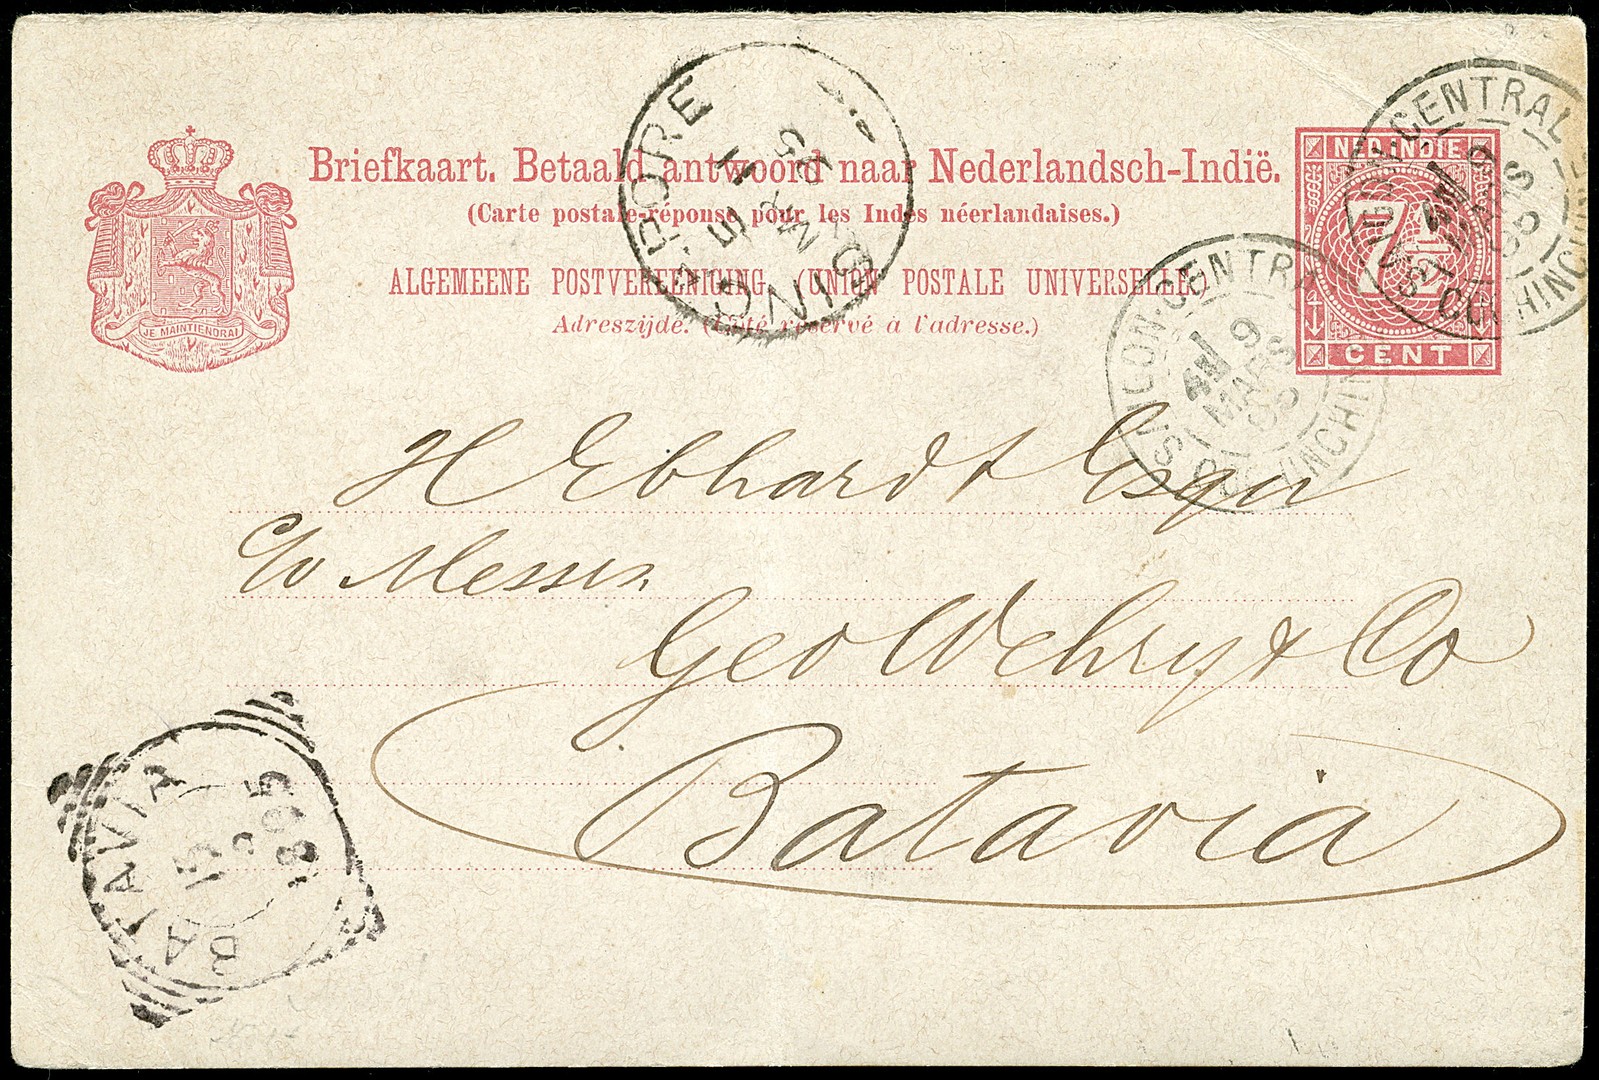 Briefkaart. Betaald antwoord naar Nederlandsch-Indië.
(Carte postale-réponse pour les Indes néerlandaises.)
ALGEMEENE POSTVEREENIGING (UNION POSTALE UNIVERSELLE.)
Adreszijde. (Côté réservé à l'adresse.)
JE MAINTIENDRAI
NED. INDIE
7½
CENT
SINGAPORE
E
MR 11
95
SAIGON-CENTRAL
9
MARS
95
COCHINCHINE
SAIGON-CENTRAL
9
MARS
95
COCHINCHINE
H Ebhardt Esqr
c/o Messrs
Geo Wehry & Co
Batavia
BATAVIA
15
3
1895